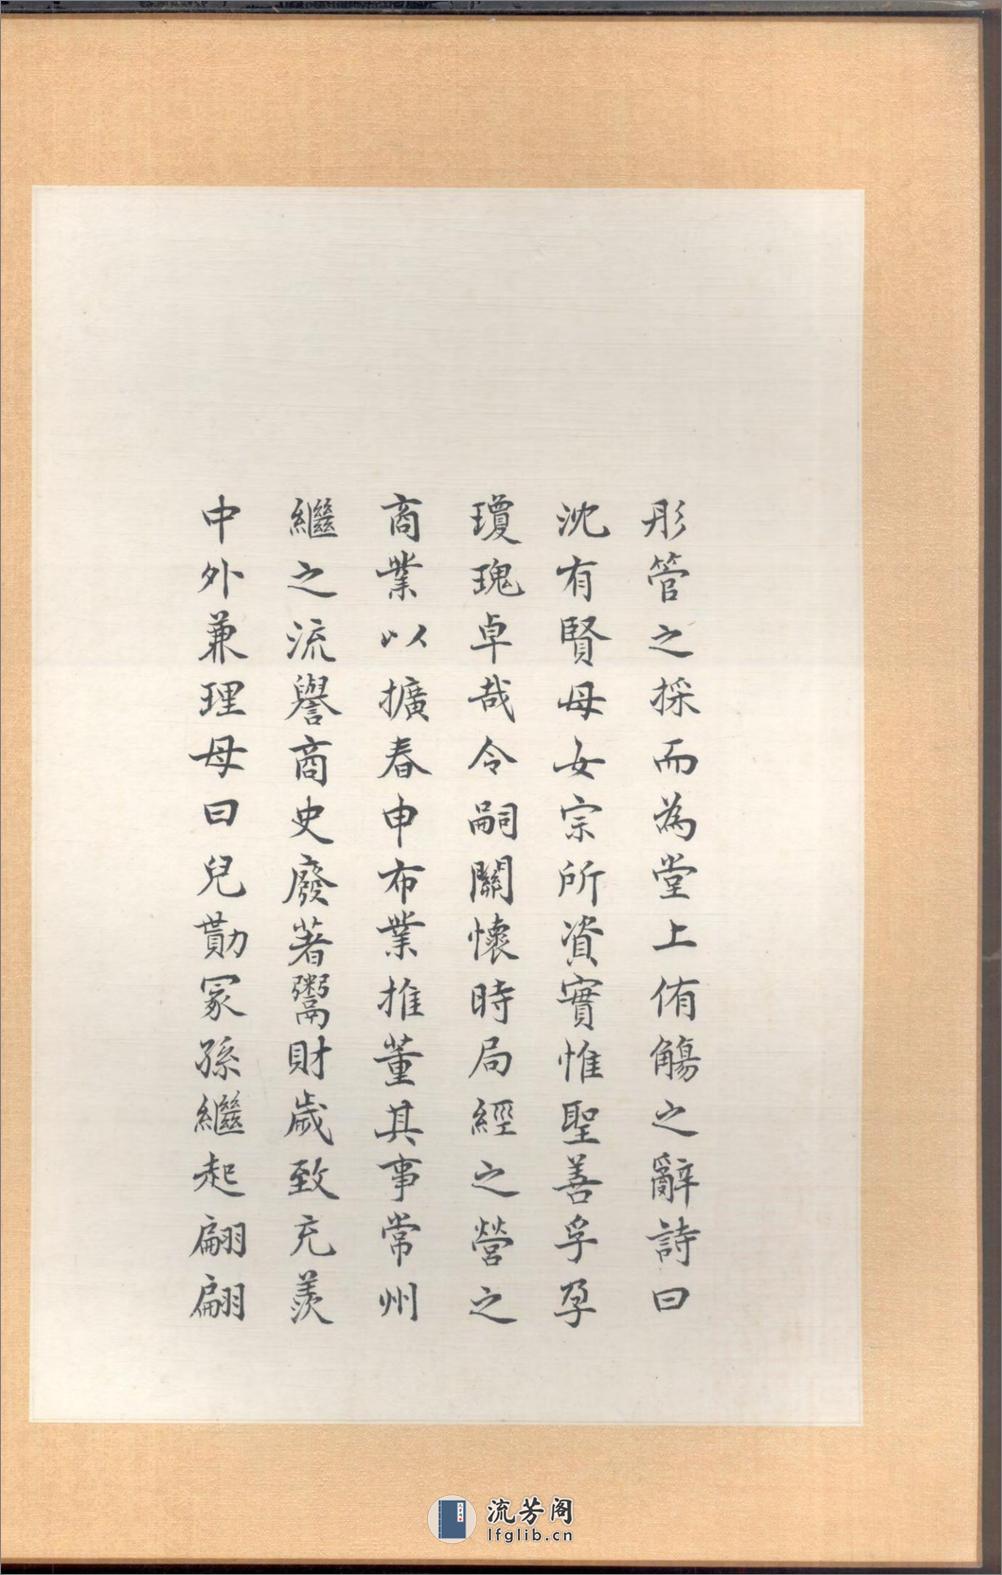 彤管之採而為堂上侑觴之辭詩曰
沈有賢母女宗所資實惟聖善孚孕
瓊瑰卓哉令嗣關懷時局經之營之
商業以擴春申布業推董其事常州
繼之流譽商史廢著鬻財歲致充羨
中外兼理母曰兒勩冢孫繼起翩翩
流芳阁
lfglib.cn